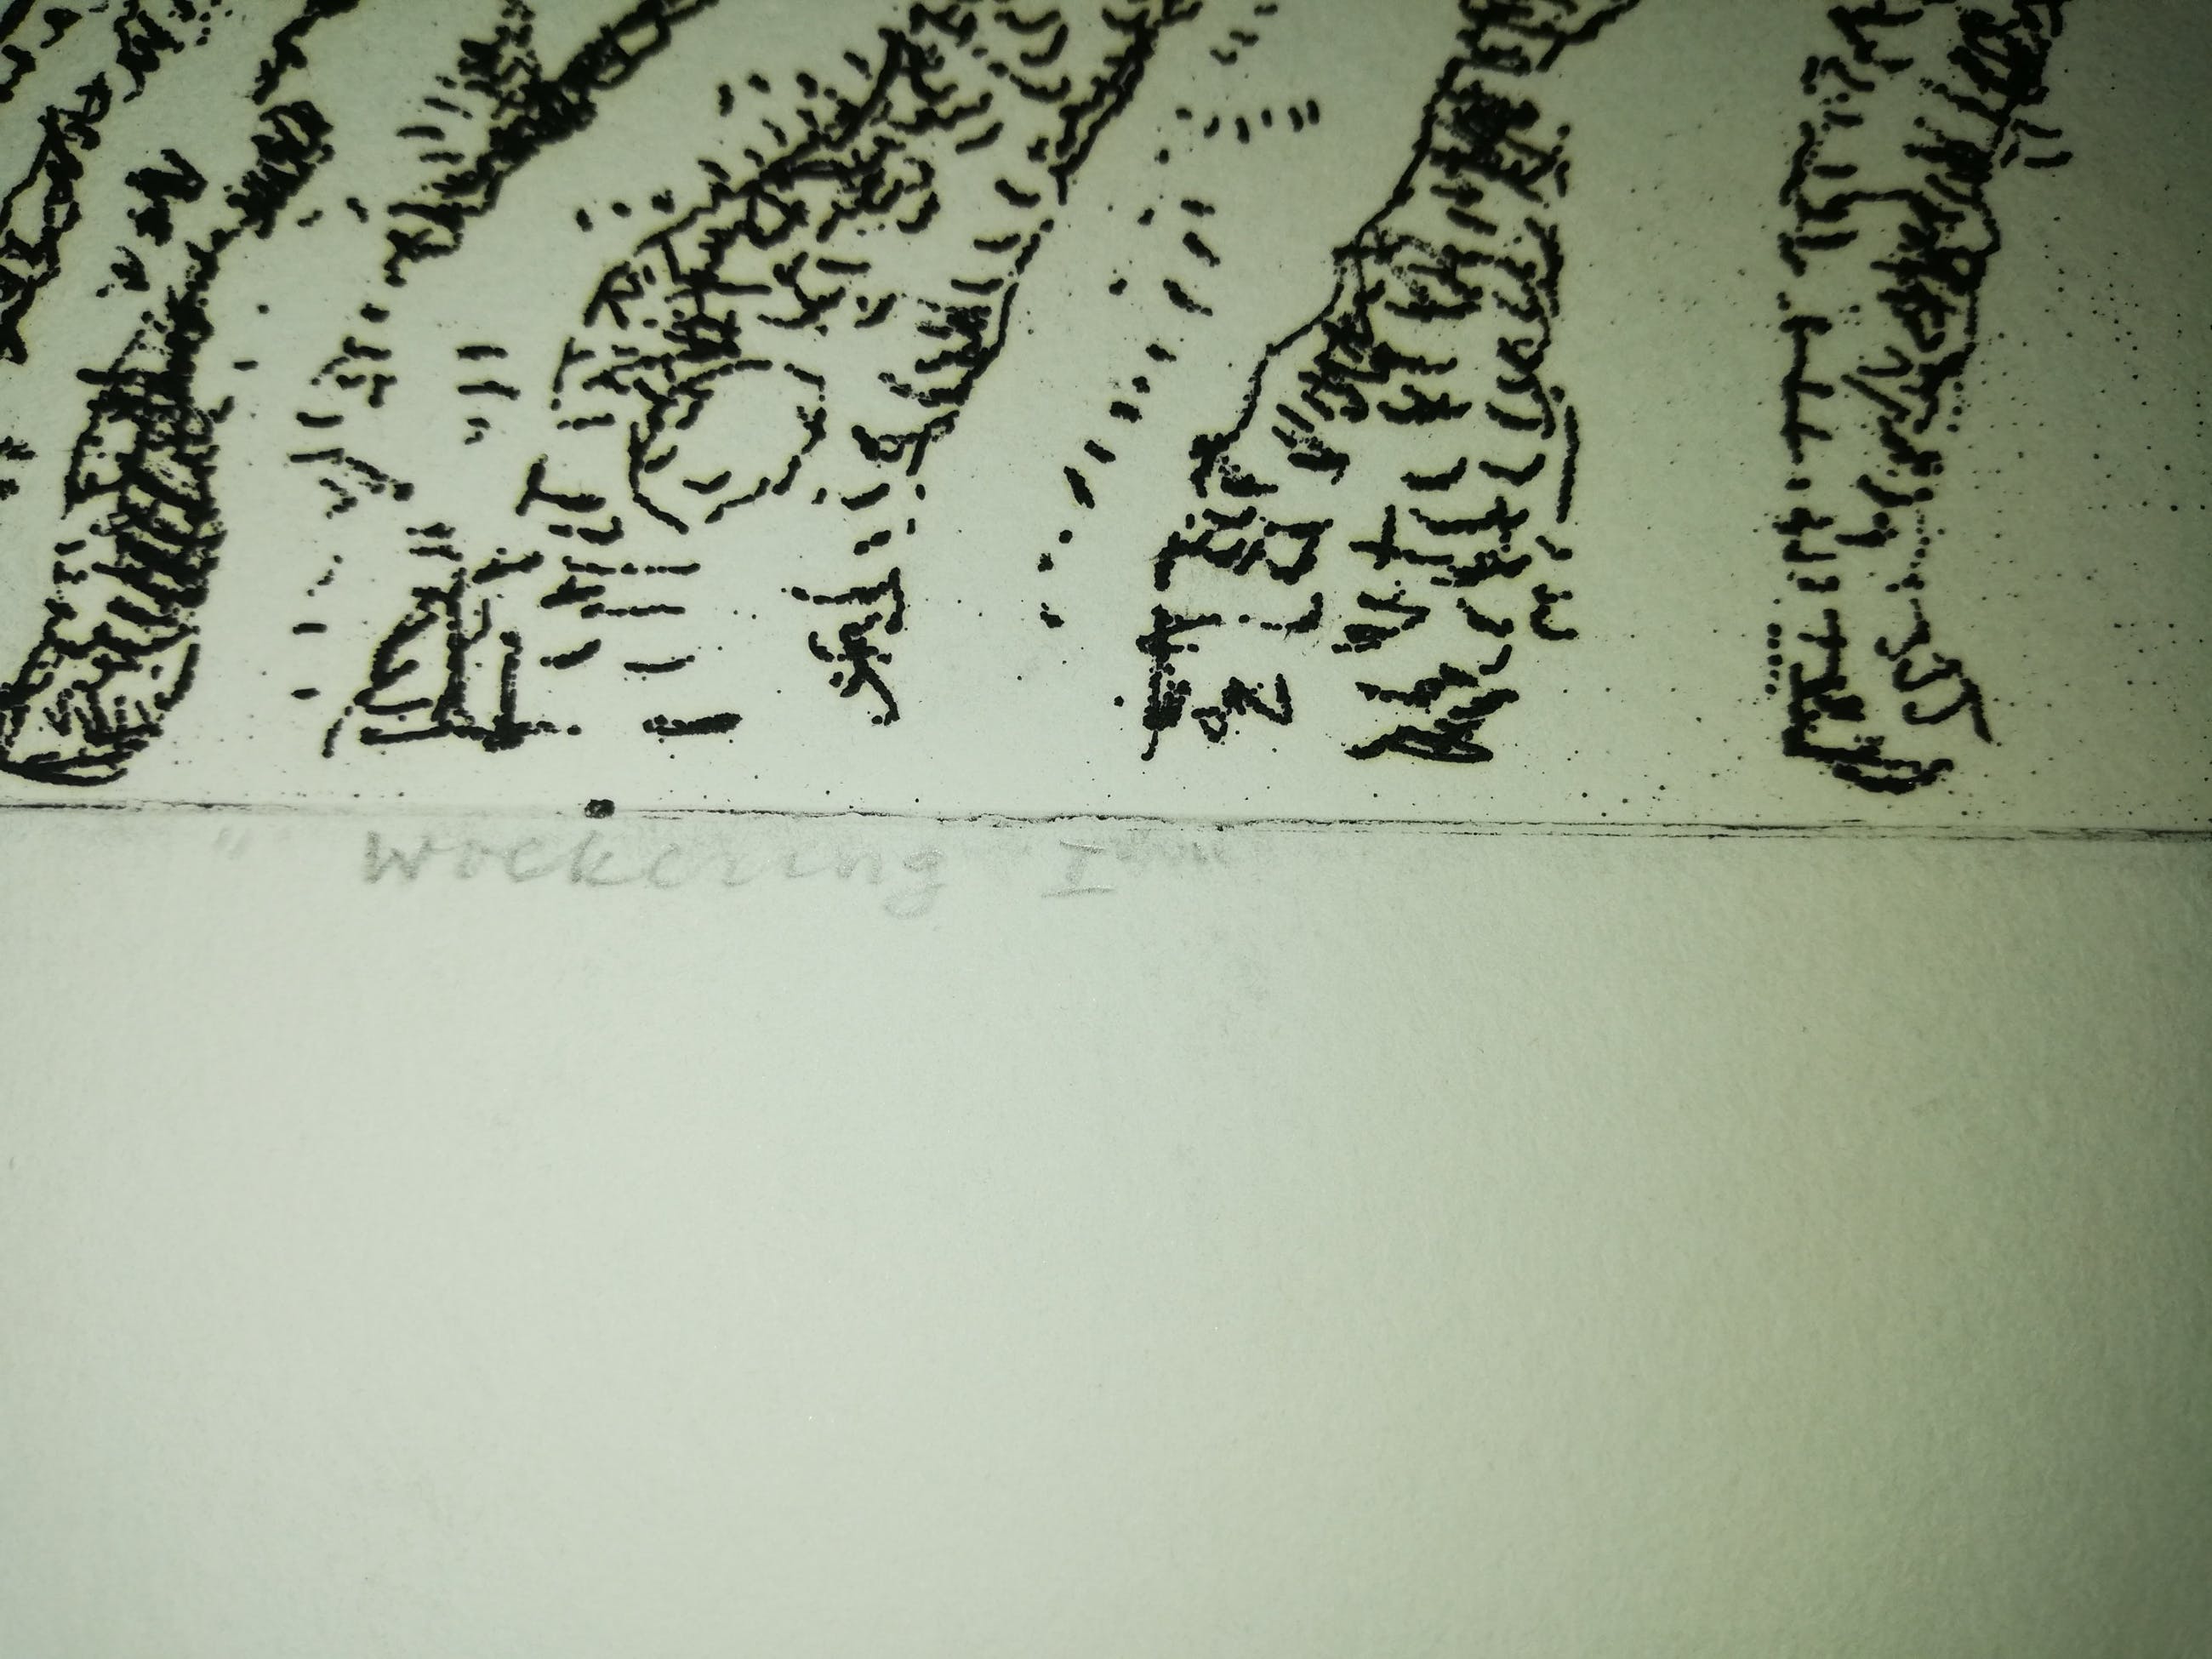 " Woekering I